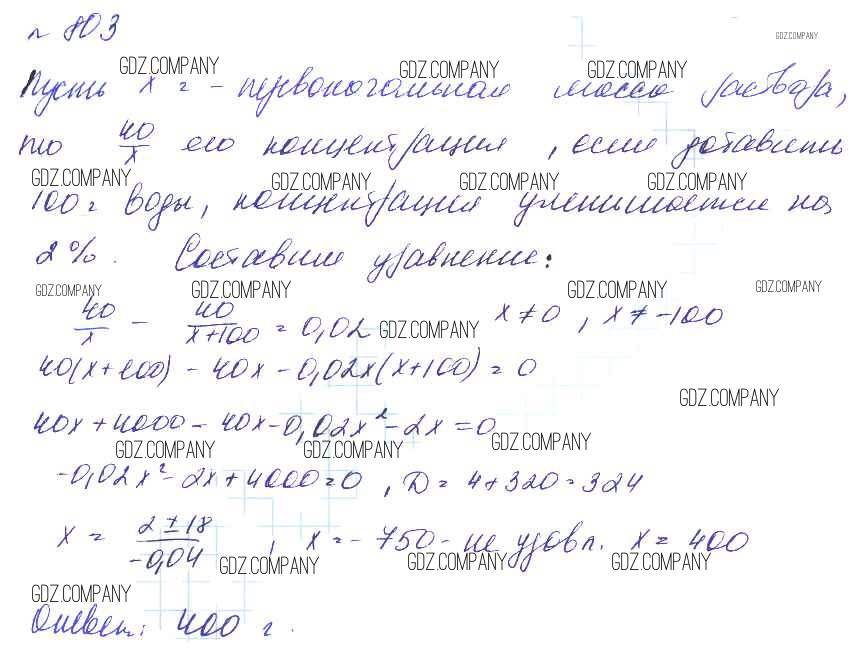 № 803
GDZ.COMPANY
GDZ.COMPANY GDZ.COMPANY GDZ.COMPANY
Пусть x г - первоначальная масса раствора,
то 40/x его концентрация, если добавить
GDZ.COMPANY GDZ.COMPANY GDZ.COMPANY GDZ.COMPANY
100 г воды, концентрация уменьшается на
2 %. Составим уравнение:
GDZ.COMPANY GDZ.COMPANY GDZ.COMPANY GDZ.COMPANY
40/x - 40/(x+100) = 0,02 GDZ.COMPANY x ≠ 0, x ≠ -100
40(x+100) - 40x - 0,02x(x+100) = 0
GDZ.COMPANY
40x + 4000 - 40x - 0,02x² - 2x = 0
GDZ.COMPANY GDZ.COMPANY GDZ.COMPANY
-0,02x² - 2x + 4000 = 0, D = 4 + 320 = 324
x = (2 ± 18)/(-0,04), x = -750 - не удовл. x = 400
GDZ.COMPANY GDZ.COMPANY GDZ.COMPANY
GDZ.COMPANY
Ответ: 400 г.